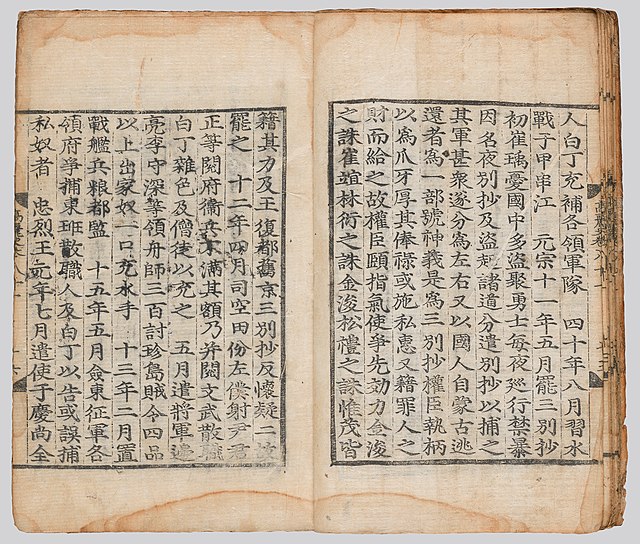 人白丁充補各領軍隊 四十年八月習水
戰于甲串江 元宗十一年五月罷三別抄
初崔瑀憂國中多盜聚勇士每夜巡行禁暴
因名夜別抄及盜起諸道分遣別抄以捕之
其軍甚衆遂分爲左右又以國人自蒙古逃
還者爲一部號神義是爲三別抄權臣執柄
以爲爪牙厚其俸祿或施私惠又籍罪人之
財而給之故權臣頤指氣使爭先効力金浚
之誅崔竩林衍之誅金浚松禮之誅惟茂皆
籍其力及王復都舊京三別抄反懷疑二故
罷之 十二年四月司空田份左僕射尹君
正等閱府衛兵不滿其額乃并閱文武散職
白丁雜色及僧徒以充之 五月遣將軍邊
亮李守深等領舟師三百討珍島賊令四品
以上出家奴一口充水手 十三年二月置
戰艦兵粮都監 十五年五月僉東征軍各
領府爭捕東班散職人及白丁以告或誤捕
私奴者 忠烈王元年七月遣使于慶尚全